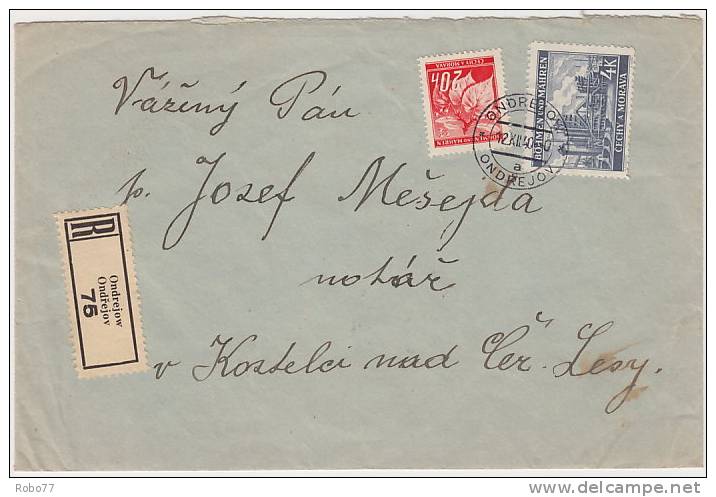 Vážený Pán
p. Josef Mešejda
notář
v Kostelci nad Čr. Lesy.
R
Ondrejow
Ondřejov
75
20h
ČECHY A MORAVA
BÖHMEN UND MÄHREN
4K
BÖHMEN UND MÄHREN
ČECHY A MORAVA
ONDREJOW
12.XII.40
a
ONDŘEJOV
Robo77
delcampe.net